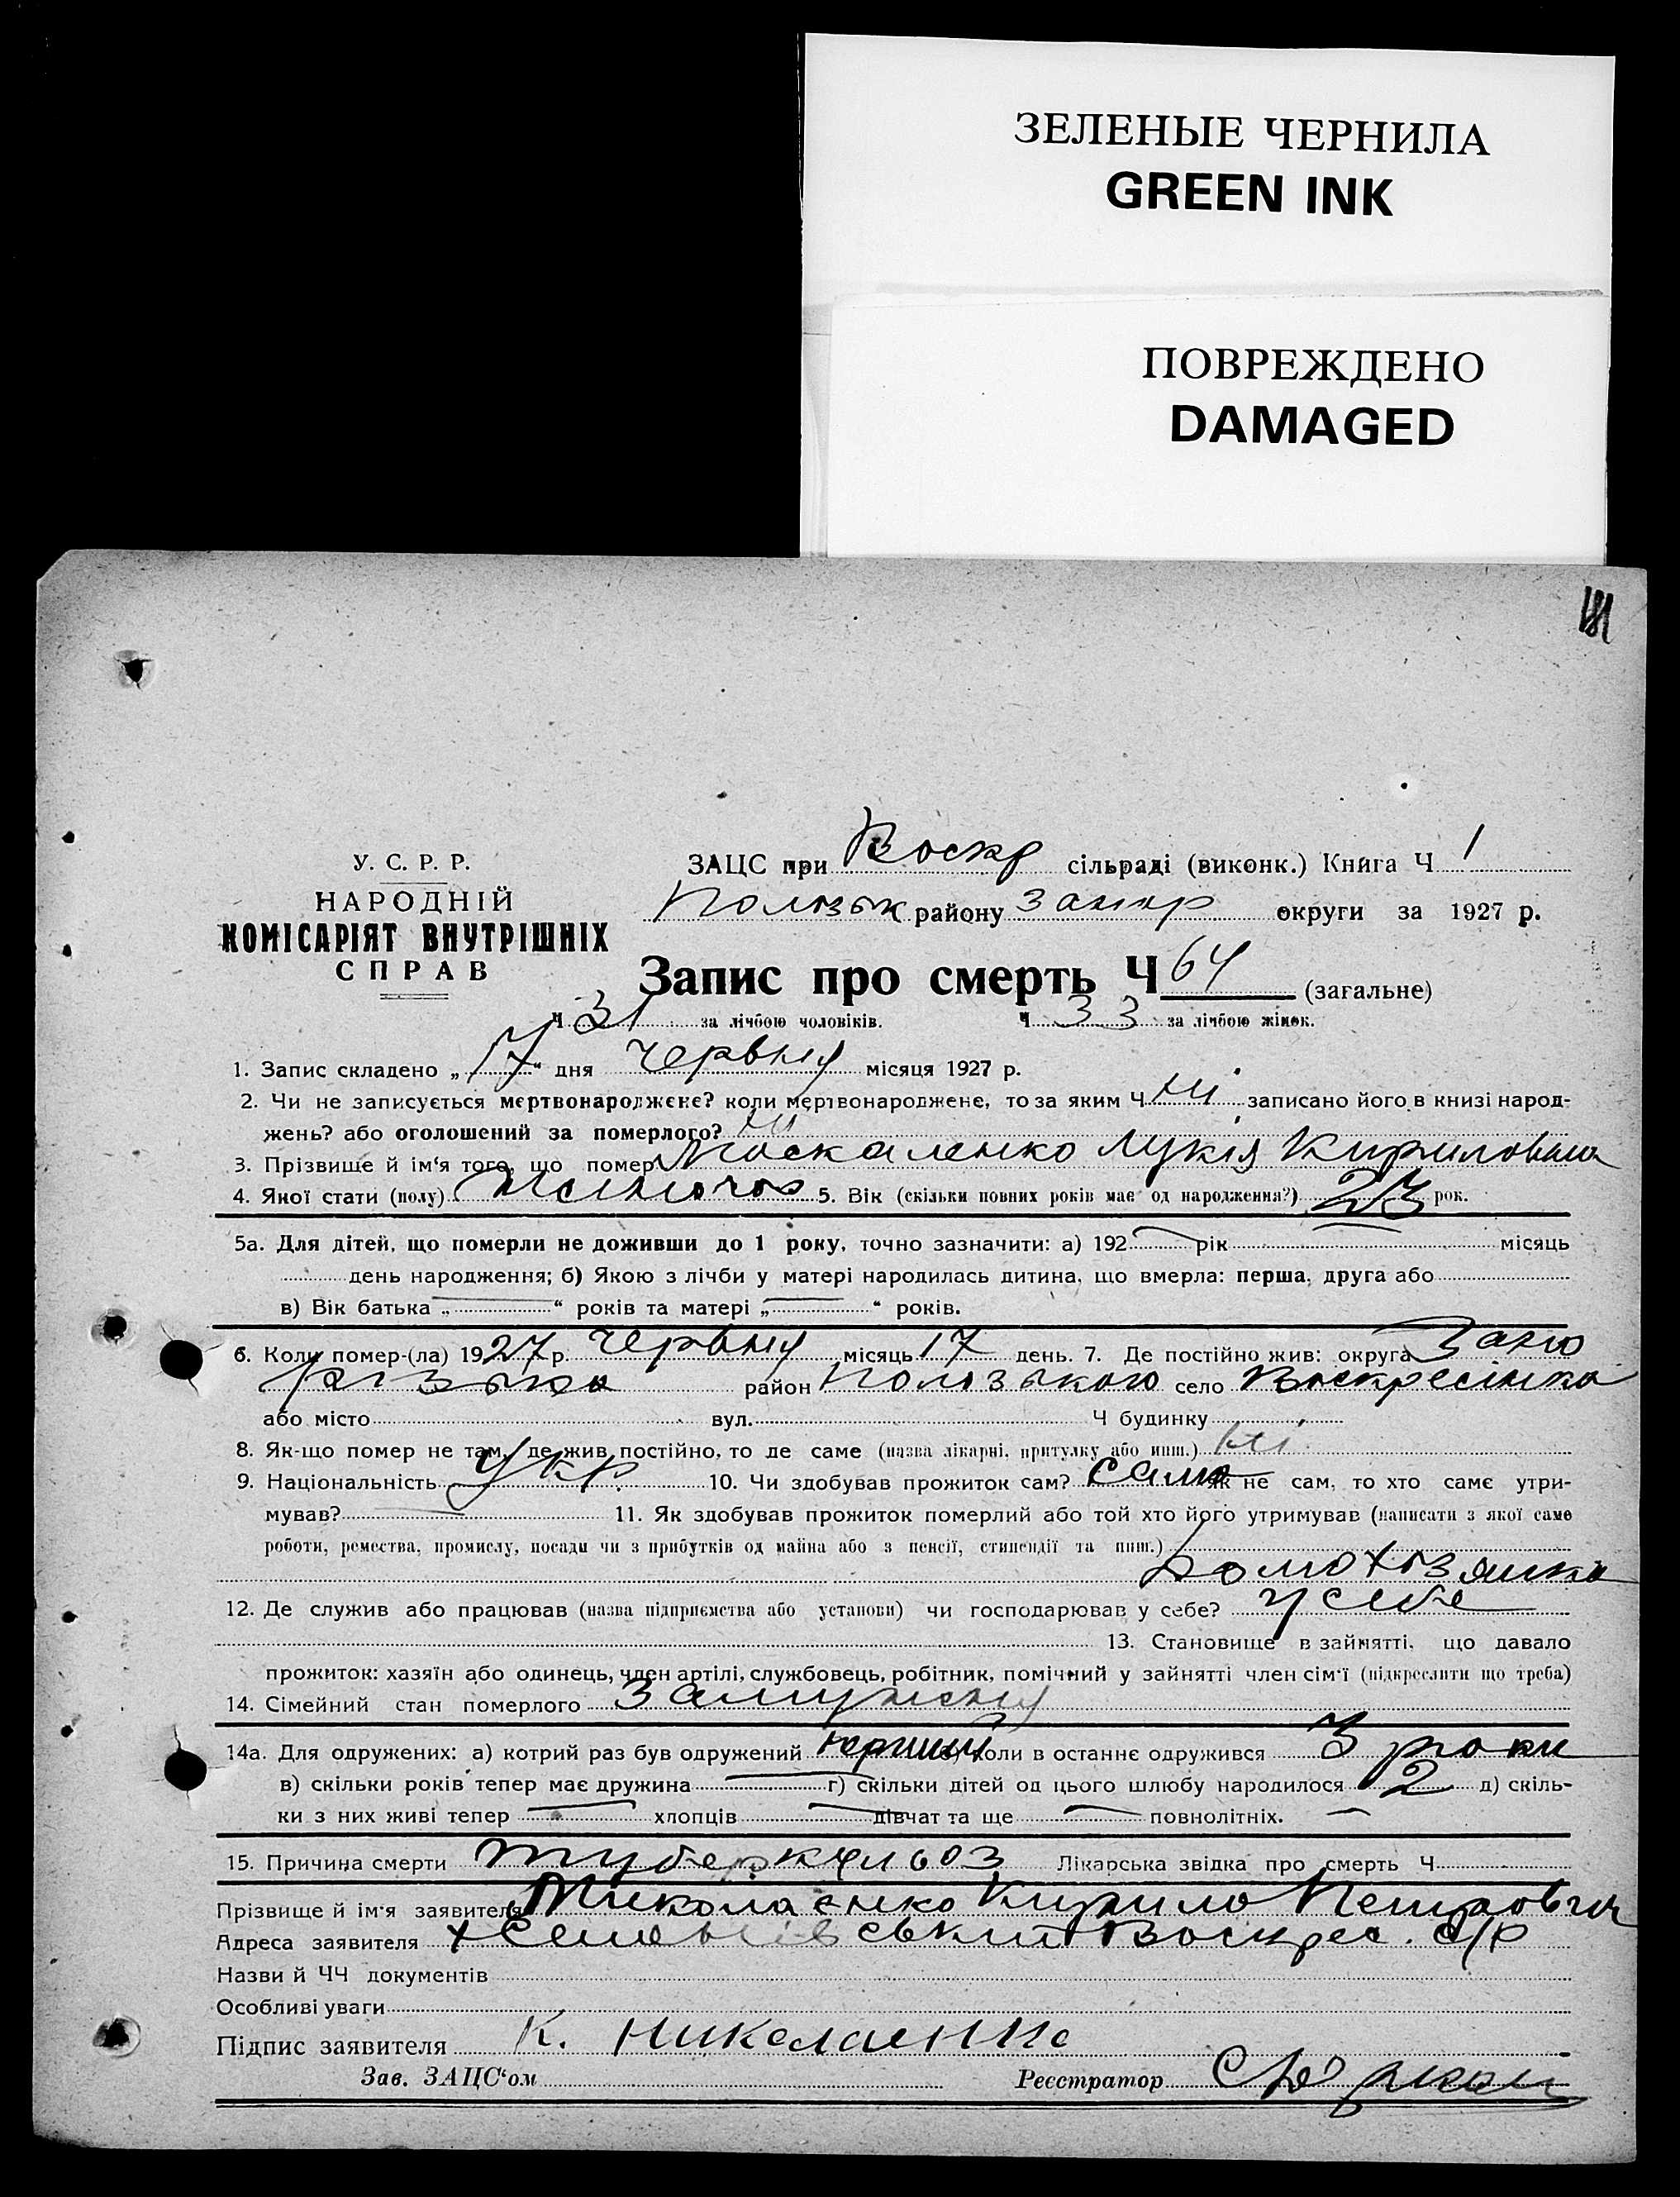 ЗЕЛЕНЫЕ ЧЕРНИЛА
GREEN INK
ПОВРЕЖДЕНО
DAMAGED
У. С. Р. Р.
НАРОДНІЙ
КОМІСАРІЯТ ВНУТРІШНІХ
СПРАВ
ЗАЦС при Воскр сільраді (виконк.) Книга Ч 1
району Запор округи за 1927 р.
Запис про смерть Ч 64 (загальне)
Ч 31 за лічбою чоловіків. Ч 33 за лічбою жінок.
1. Запис складено „17“ дня Червня місяця 1927 р.
2. Чи не записується мертвонароджене? коли мертвонароджене, то за яким Ч Ні записано його в книзі народ-
жень? або оголошений за померлого? Ні
3. Прізвище й ім‘я того, що помер Москаленко Лукія Кириловна
4. Якої стати (полу) Жіночої 5. Вік (скільки повних років має од народження?) 23 рок.
5а. Для дітей, що померли не доживши до 1 року, точно зазначити: а) 192 рік місяць
день народження; б) Якою з лічби у матері народилась дитина, що вмерла: перша, друга або
в) Вік батька „ “ років та матері „ “ років.
6. Коли помер-(ла) 1927 р. Червня місяць 17 день. 7. Де постійно жив: округа Запо
різька район Пологзького село Воскресінка
або місто вул. Ч будинку
8. Як-що помер не там, де жив постійно, то де саме (назва лікарні, притулку або инш.) Ні
9. Національність Укр. 10. Чи здобував прожиток сам? Сама Як не сам, то хто саме утри-
мував? 11. Як здобував прожиток померлий або той хто його утримував (написати з якої саме
роботи, ремества, промислу, посади чи з прибутків од майна або з пенсії, стипендії та инш.)
Домохозяйка
12. Де служив або працював (назва підприємства або установи) чи господарював у себе? У себе
13. Становище в зайнятті, що давало
прожиток: хазяїн або одинець, член артілі, службовець, робітник, помічний у зайнятті член сім‘ї (підкреслити що треба)
14. Сімейний стан померлого Замужня
14а. Для одружених: а) котрий раз був одружений перший б) коли в останнє одружився 3 роки
в) скільки років тепер має дружина г) скільки дітей од цього шлюбу народилося 2 д) скіль-
ки з них живі тепер хлопців дівчат та ще повнолітніх.
15. Причина смерти туберкульоз Лікарська звідка про смерть Ч
Прізвище й ім‘я заявителя Миколаєнко Кирило Петрович
Адреса заявителя Воскрес. С/Р
Назви й ЧЧ документів
Особливі уваги
Підпис заявителя К. Николаенко
Зав. ЗАЦС‘ом Реєстратор